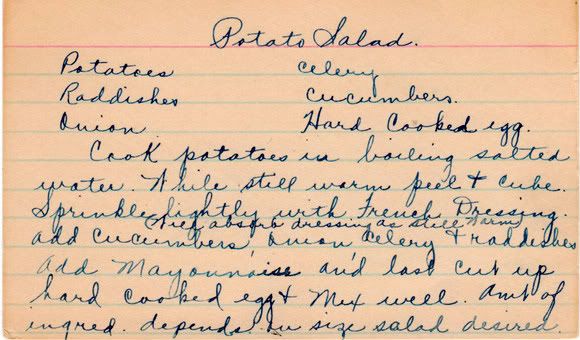 Potato Salad.
Potatoes celery
Raddishes cucumbers.
Onion Hard Cooked egg.
Cook potatoes in boiling salted
water. While still warm peel & cube.
Sprinkle lightly with French Dressing.
(Will absorb dressing as still warm)
add cucumbers, onion celery & raddishes
add Mayonnaise and last cut up
hard cooked egg & Mix well. Amt of
ingred. depends on size salad desired.